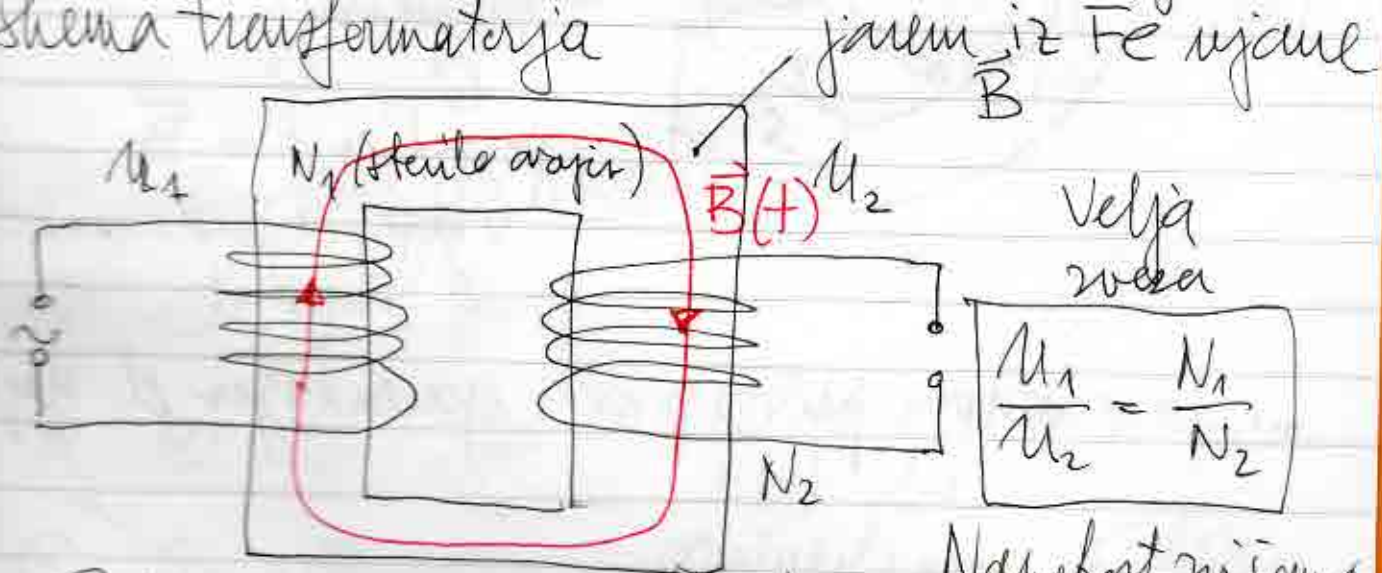 shema transformatorja
jarem iz Fe
B
U1
N1 (število ovojev)
B(t)
U2
Velja
zveza
U1/U2 = N1/N2
N2